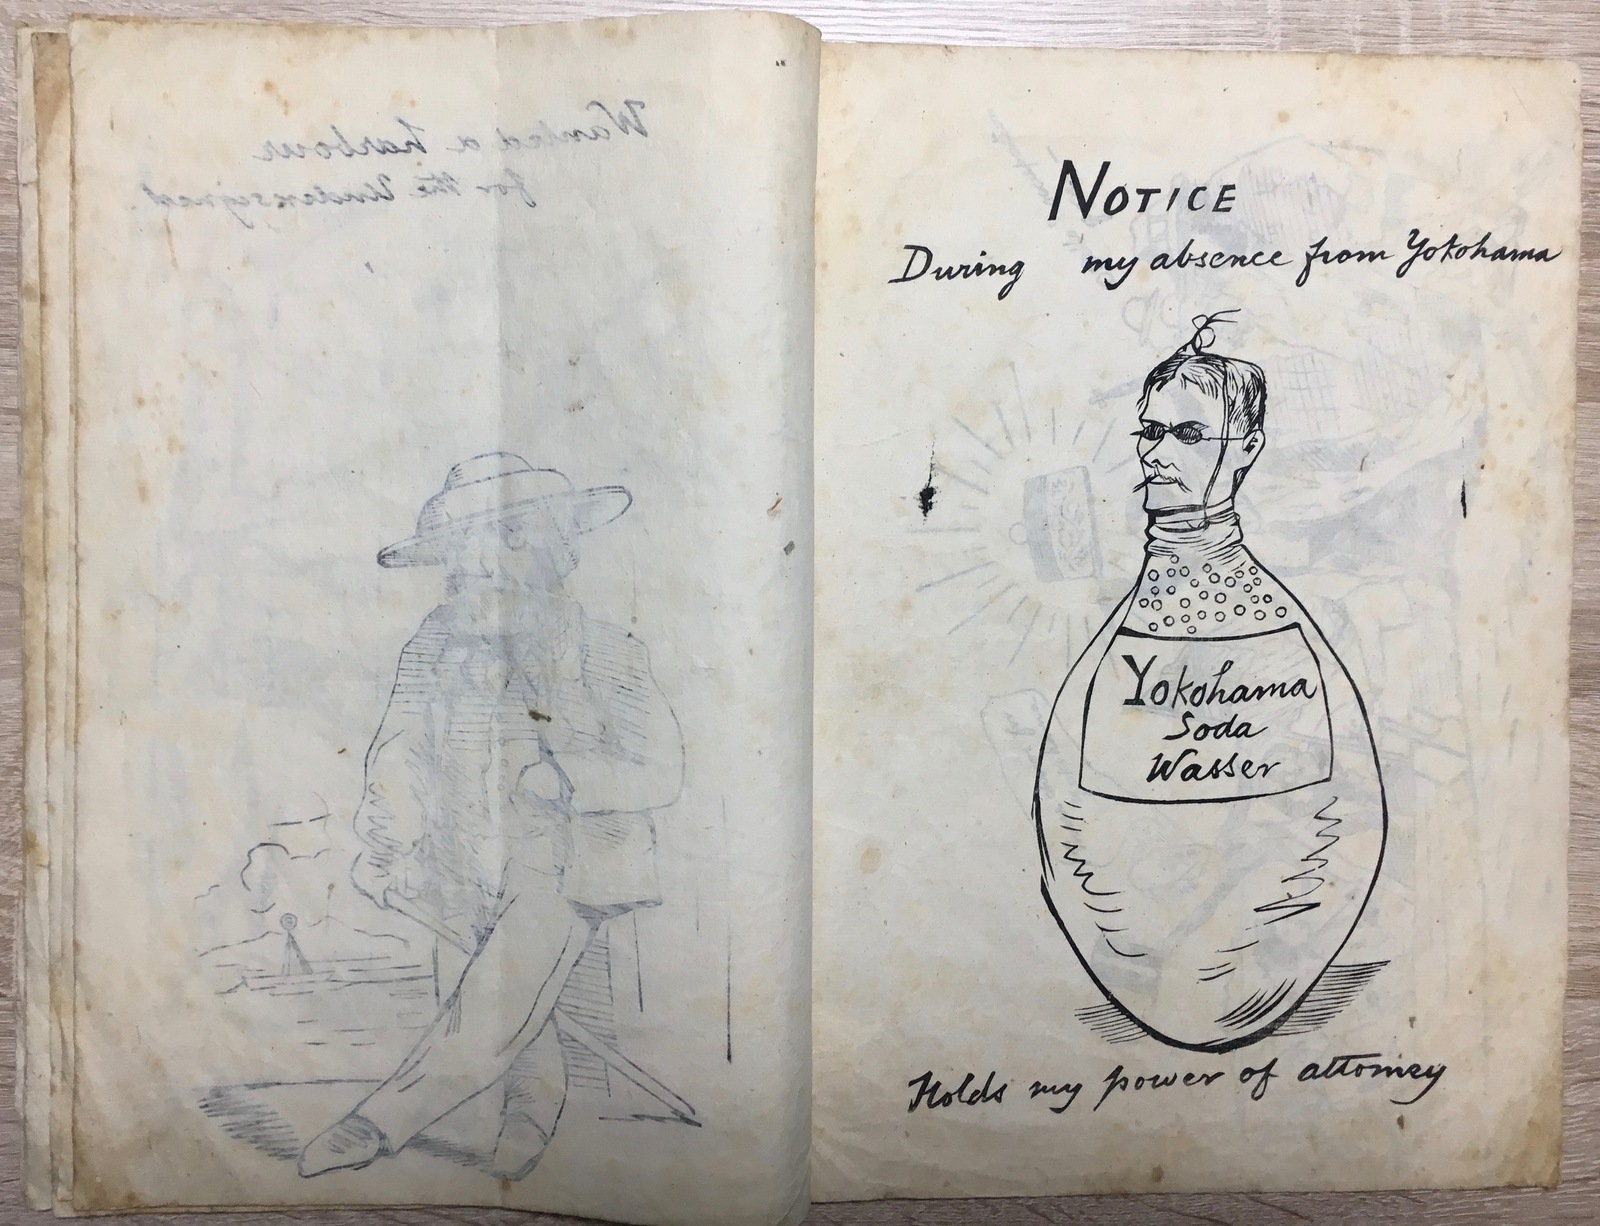 Wanted a harbour
for the Undersigned.
NOTICE
During my absence from Yokohama
Yokohama
Soda
Wasser
Holds my power of attorney